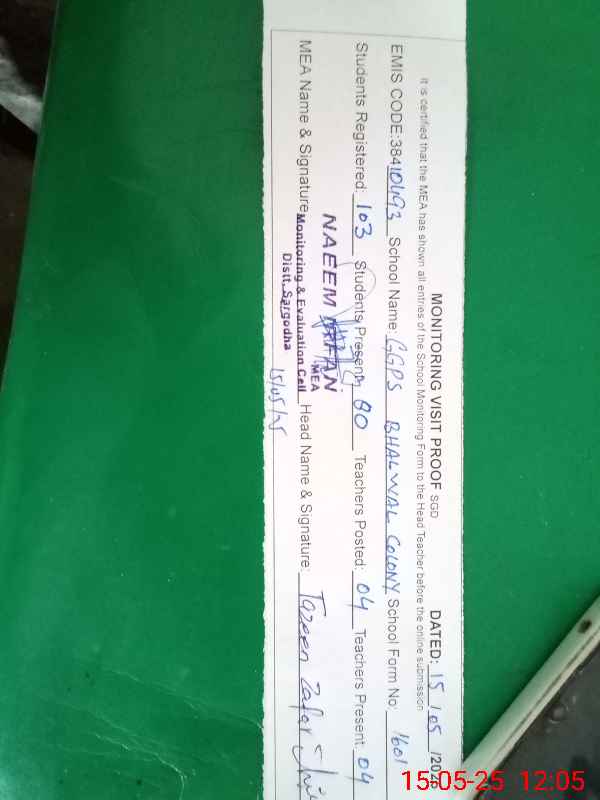 MONITORING VISIT PROOF SGD DATED: 15/05/202
It is certified that the MEA has shown all entries of the School Monitoring Form to the Head Teacher before the online submission
EMIS CODE:38410493 School Name: GGPS BHALWAL COLONY School Form No: 1601
Students Registered: 103 Students Present: 80 Teachers Posted: 04 Teachers Present: 04
MEA Name & Signature Head Name & Signature: Tazeen Zafar
NAEEM IRFAN
MEA
Monitoring & Evaluation Cell
Distt. Sargodha
15/05/25
15-05-25 12:05